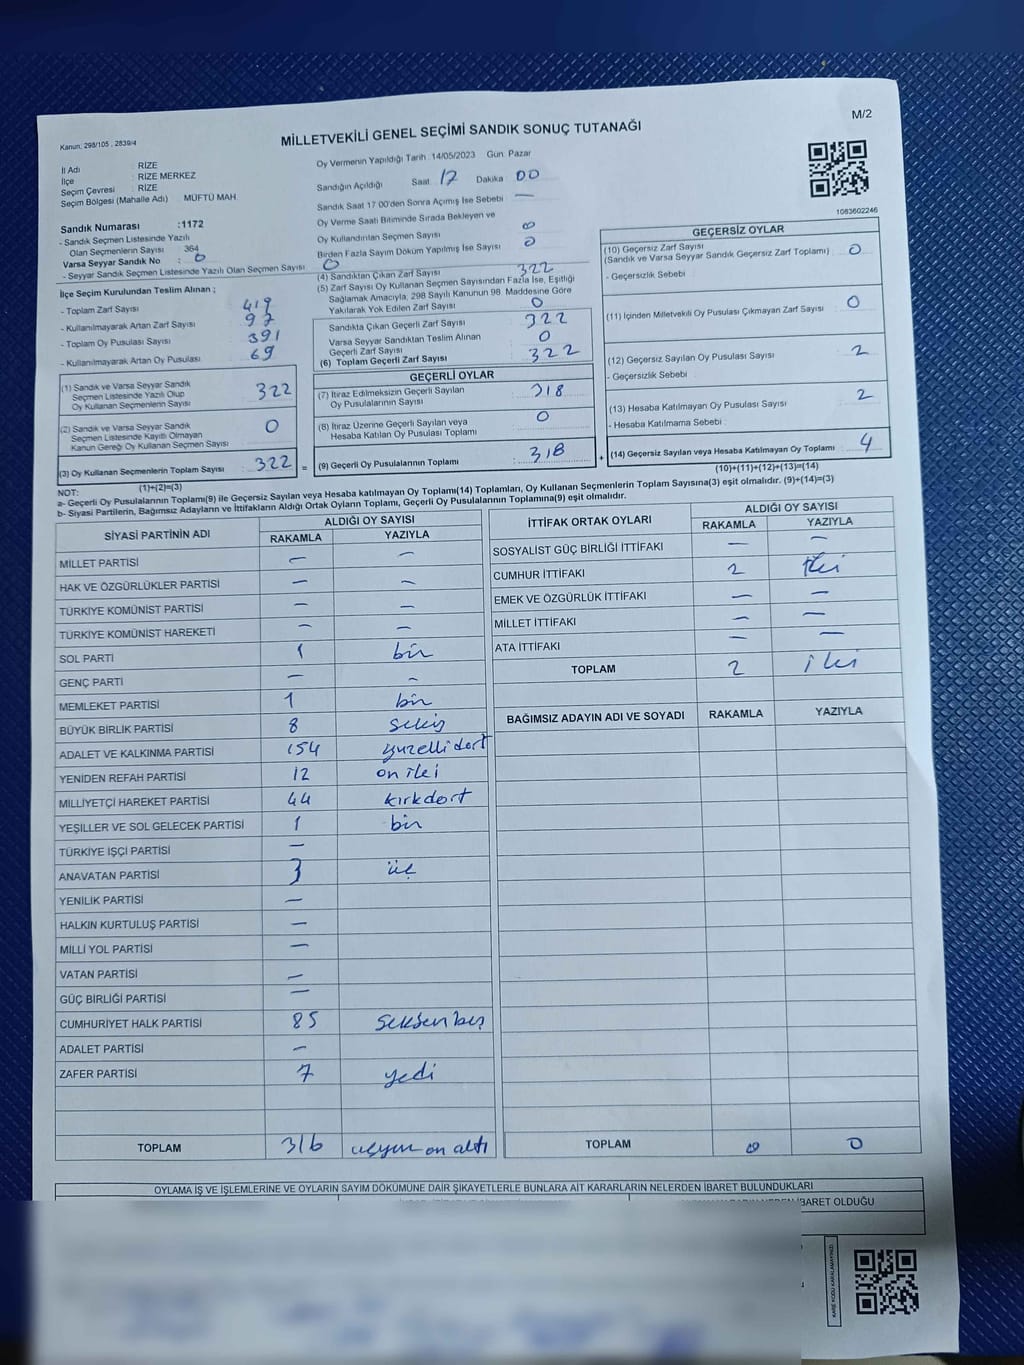 M/2
Kanun, 298/105 , 2839/4
MİLLETVEKİLİ GENEL SEÇİMİ SANDIK SONUÇ TUTANAĞI
İl Adı : RİZE
İlçe : RİZE MERKEZ
Seçim Çevresi : RİZE
Seçim Bölgesi (Mahalle Adı) MÜFTÜ MAH.
Sandık Numarası :1172
- Sandık Seçmen Listesinde Yazılı
Olan Seçmenlerin Sayısı : 364
Varsa Seyyar Sandık No : 0
- Seyyar Sandık Seçmen Listesinde Yazılı Olan Seçmen Sayısı : 0
İlçe Seçim Kurulundan Teslim Alınan ;
- Toplam Zarf Sayısı 419
- Kullanılmayarak Artan Zarf Sayısı : 97
- Toplam Oy Pusulası Sayısı : 391
- Kullanılmayarak Artan Oy Pusulası : 69
(1) Sandık ve Varsa Seyyar Sandık
Seçmen Listesinde Yazılı Olup
Oy Kullanan Seçmenlerin Sayısı 322
(2) Sandık ve Varsa Seyyar Sandık
Seçmen Listesinde Kayıtlı Olmayan
Kanun Gereği Oy Kullanan Seçmen Sayısı 0
(3) Oy Kullanan Seçmenlerin Toplam Sayısı 322
(1)+(2)=(3)
Oy Vermenin Yapıldığı Tarih :14/05/2023 Gün: Pazar
Sandığın Açıldığı Saat 17 Dakika 00
Sandık Saat 17 00'den Sonra Açımış İse Sebebi —
Oy Verme Saati Bitiminde Sırada Bekleyen ve
Oy Kullandırılan Seçmen Sayısı 0
Birden Fazla Sayım Döküm Yapılmış İse Sayısı 0
(4) Sandıktan Çıkan Zarf Sayısı 322
(5) Zarf Sayısı Oy Kullanan Seçmen Sayısından Fazla İse, Eşitliği
Sağlamak Amacıyla, 298 Sayılı Kanunun 98. Maddesine Göre
Yakılarak Yok Edilen Zarf Sayısı : 0
Sandıkta Çıkan Geçerli Zarf Sayısı 322
Varsa Seyyar Sandıktan Teslim Alınan
Geçerli Zarf Sayısı 0
(6) Toplam Geçerli Zarf Sayısı : 322
GEÇERLİ OYLAR
(7) İtiraz Edilmeksizin Geçerli Sayılan
Oy Pusulalarının Sayısı 318
(8) İtiraz Üzerine Geçerli Sayılan veya
Hesaba Katılan Oy Pusulası Toplamı 0
= (9) Geçerli Oy Pusulalarının Toplamı : 318 +
GEÇERSİZ OYLAR
1083602246
(10) Geçersiz Zarf Sayısı
(Sandık ve Varsa Seyyar Sandık Geçersiz Zarf Toplamı) : 0
- Geçersizlik Sebebi
(11) İçinden Milletvekili Oy Pusulası Çıkmayan Zarf Sayısı : 0
(12) Geçersiz Sayılan Oy Pusulası Sayısı 2
- Geçersizlik Sebebi
(13) Hesaba Katılmayan Oy Pusulası Sayısı 2
- Hesaba Katılmama Sebebi
(14) Geçersiz Sayılan veya Hesaba Katılmayan Oy Toplamı : 4
(10)+(11)+(12)+(13)=(14)
NOT:
a- Geçerli Oy Pusulalarının Toplamı(9) ile Geçersiz Sayılan veya Hesaba katılmayan Oy Toplamı(14) Toplamları, Oy Kullanan Seçmenlerin Toplam Sayısına(3) eşit olmalıdır. (9)+(14)=(3)
b- Siyasi Partilerin, Bağımsız Adayların ve İttifakların Aldığı Ortak Oyların Toplamı, Geçerli Oy Pusulalarının Toplamına(9) eşit olmalıdır.
SİYASİ PARTİNİN ADI ALDIĞI OY SAYISI
RAKAMLA YAZIYLA
MİLLET PARTİSİ — —
HAK VE ÖZGÜRLÜKLER PARTİSİ — —
TÜRKİYE KOMÜNİST PARTİSİ — —
TÜRKİYE KOMÜNİST HAREKETİ — —
SOL PARTİ 1 bir
GENÇ PARTİ — —
MEMLEKET PARTİSİ 1 bir
BÜYÜK BİRLİK PARTİSİ 8 sekiz
ADALET VE KALKINMA PARTİSİ 154 yüzelli dört
YENİDEN REFAH PARTİSİ 12 on iki
MİLLİYETÇİ HAREKET PARTİSİ 44 kırkdört
YEŞİLLER VE SOL GELECEK PARTİSİ 1 bir
TÜRKİYE İŞÇİ PARTİSİ —
ANAVATAN PARTİSİ 3 üç
YENİLİK PARTİSİ —
HALKIN KURTULUŞ PARTİSİ —
MİLLİ YOL PARTİSİ —
VATAN PARTİSİ —
GÜÇ BİRLİĞİ PARTİSİ —
CUMHURİYET HALK PARTİSİ 85 seksen beş
ADALET PARTİSİ —
ZAFER PARTİSİ 7 yedi
TOPLAM 316 üçyüz on altı
İTTİFAK ORTAK OYLARI ALDIĞI OY SAYISI
RAKAMLA YAZIYLA
SOSYALİST GÜÇ BİRLİĞİ İTTİFAKI — —
CUMHUR İTTİFAKI 2 iki
EMEK VE ÖZGÜRLÜK İTTİFAKI — —
MİLLET İTTİFAKI — —
ATA İTTİFAKI — —
TOPLAM 2 iki
BAĞIMSIZ ADAYIN ADI VE SOYADI RAKAMLA YAZIYLA
TOPLAM 0 0
OYLAMA İŞ VE İŞLEMLERİNE VE OYLARIN SAYIM DÖKÜMÜNE DAİR ŞİKAYETLERLE BUNLARA AİT KARARLARIN NELERDEN İBARET BULUNDUKLARI
İBARET OLDUĞU
KARE KODU KARALAMAYINIZ!